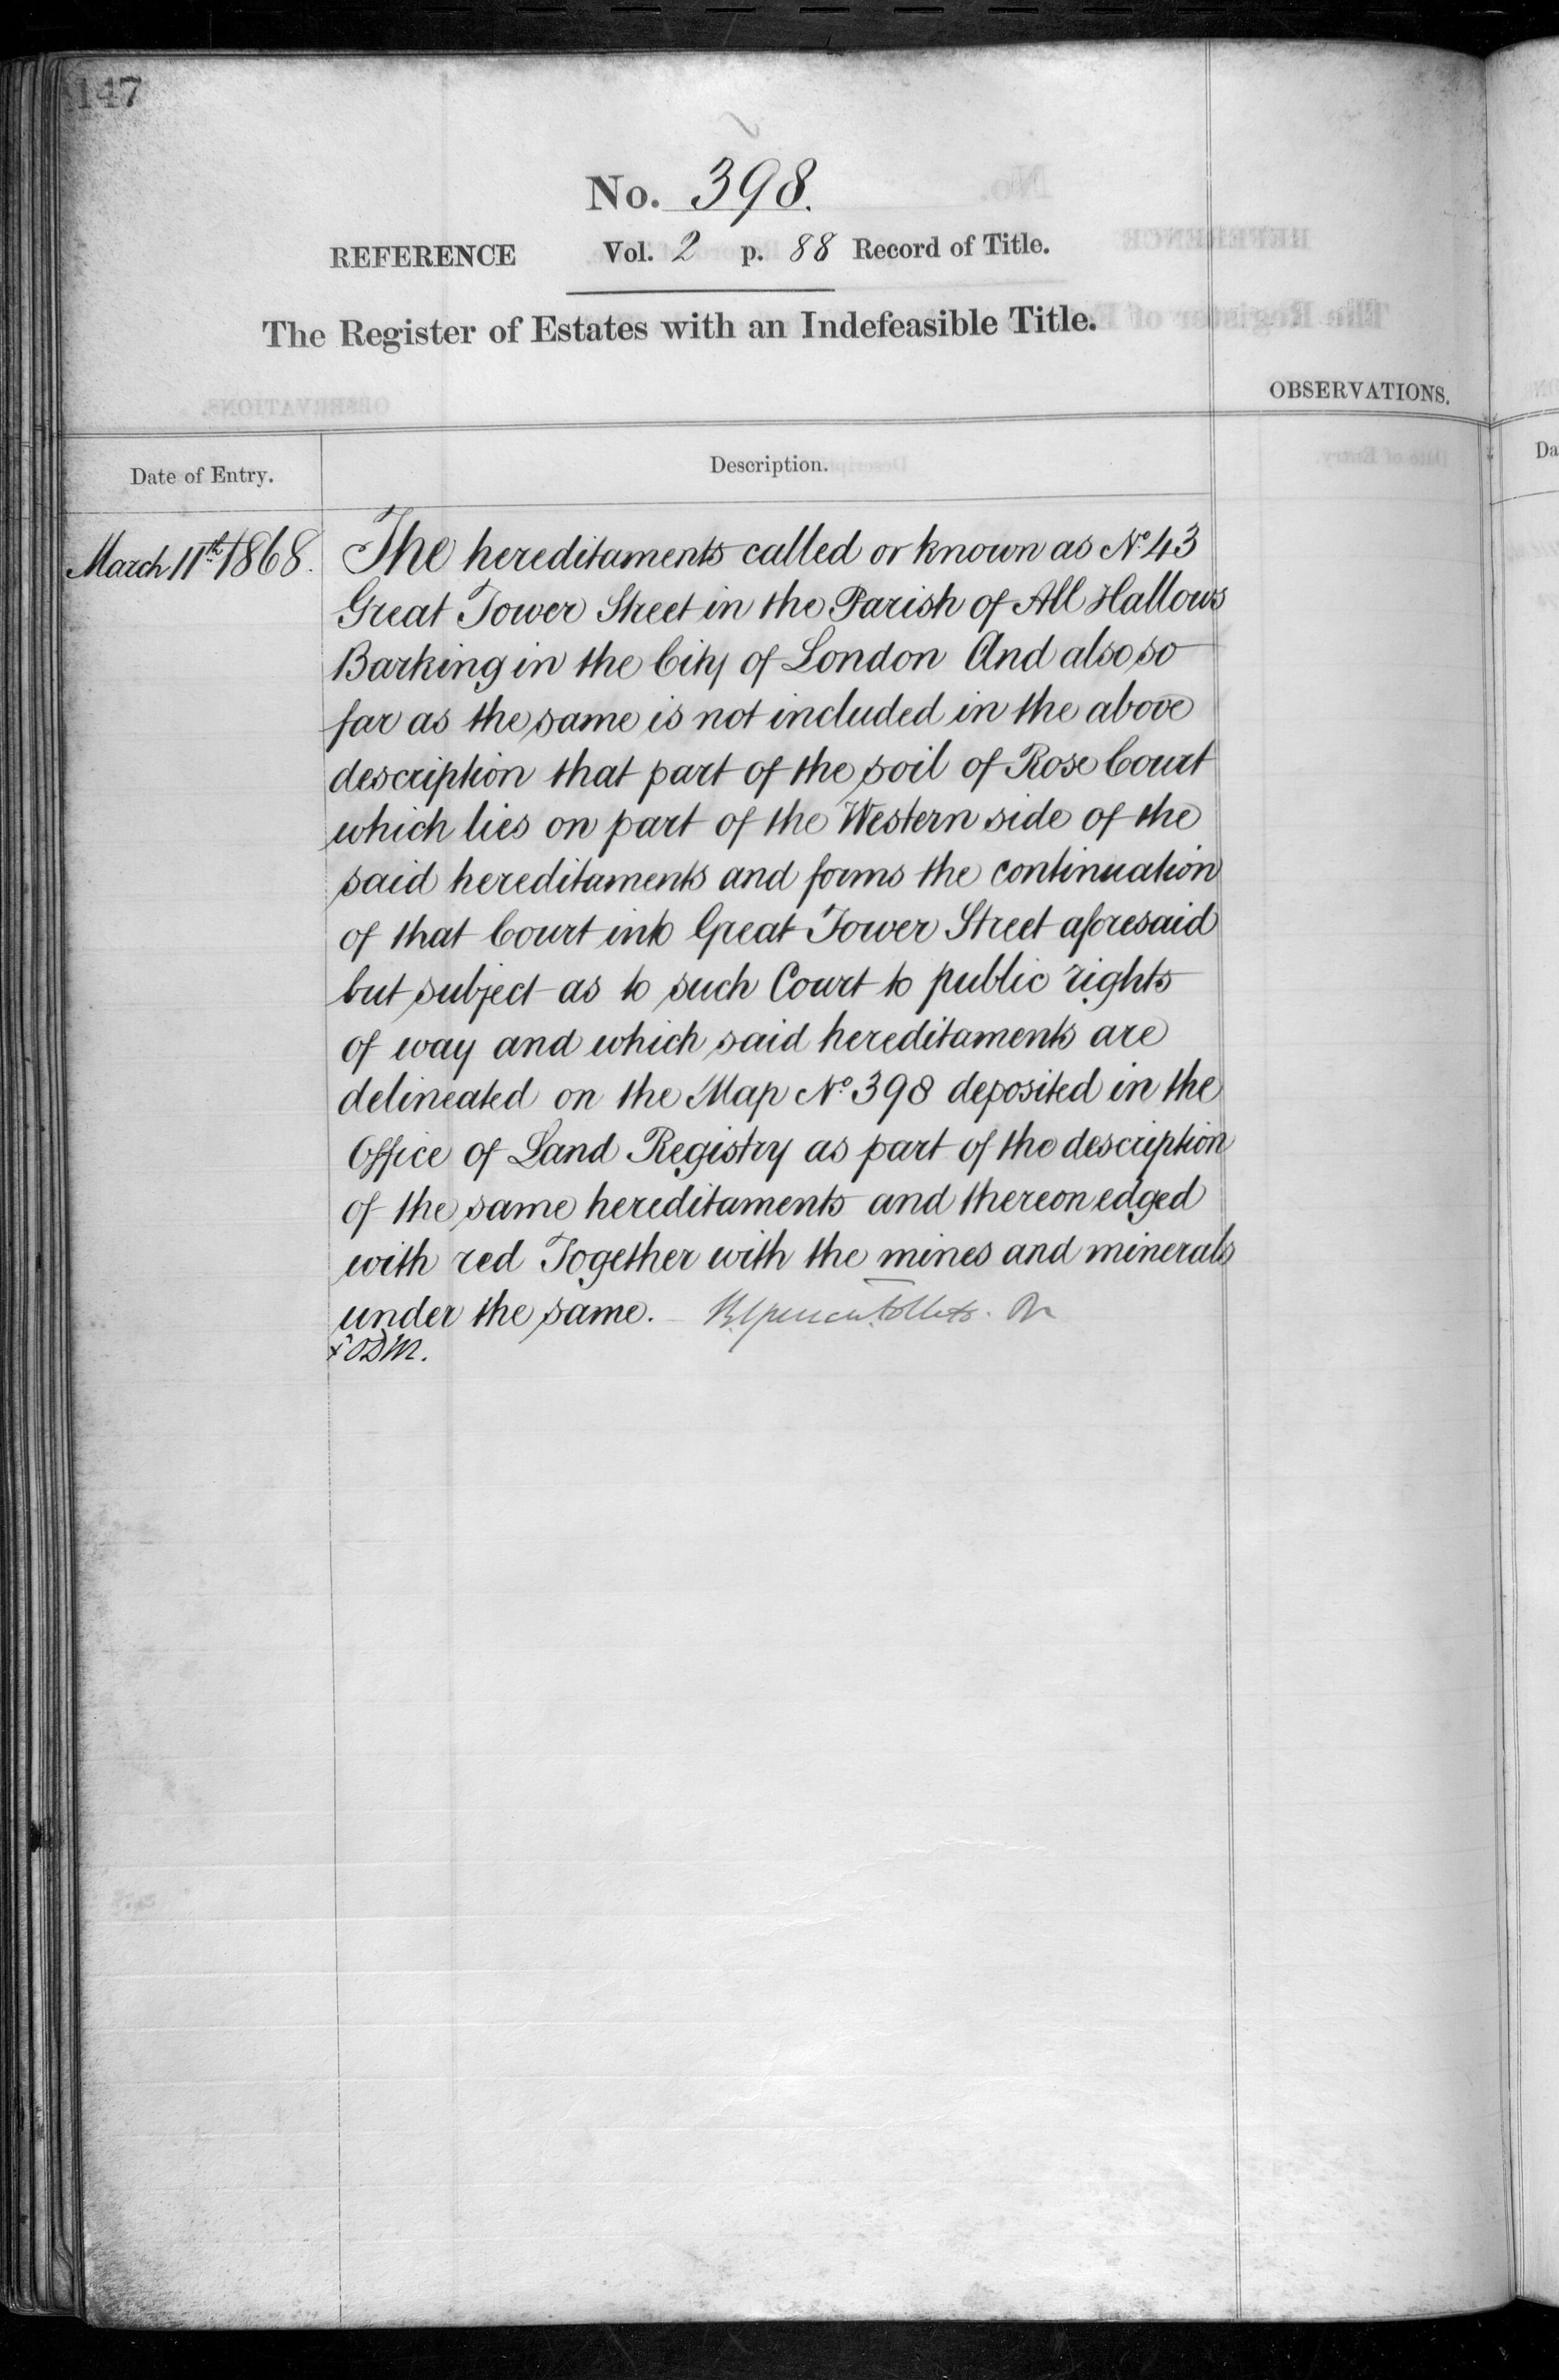 147
No. 398.
REFERENCE Vol. 2 p. 88 Record of Title.
The Register of Estates with an Indefeasible Title.
OBSERVATIONS.
Date of Entry.
Description.
Da
March 11th 1868.
The hereditaments called or known as No 43
Great Tower Street in the Parish of All Hallows
Barking in the City of London And also so
far as the same is not included in the above
description that part of the soil of Rose Court
which lies on part of the Western side of the
said hereditaments and forms the continuation
of that Court into Great Tower Street aforesaid
but subject as to such Court to public rights
of way and which said hereditaments are
delineated on the Map No 398 deposited in the
Office of Land Registry as part of the description
of the same hereditaments and thereon edged
with red Together with the mines and minerals
under the same.